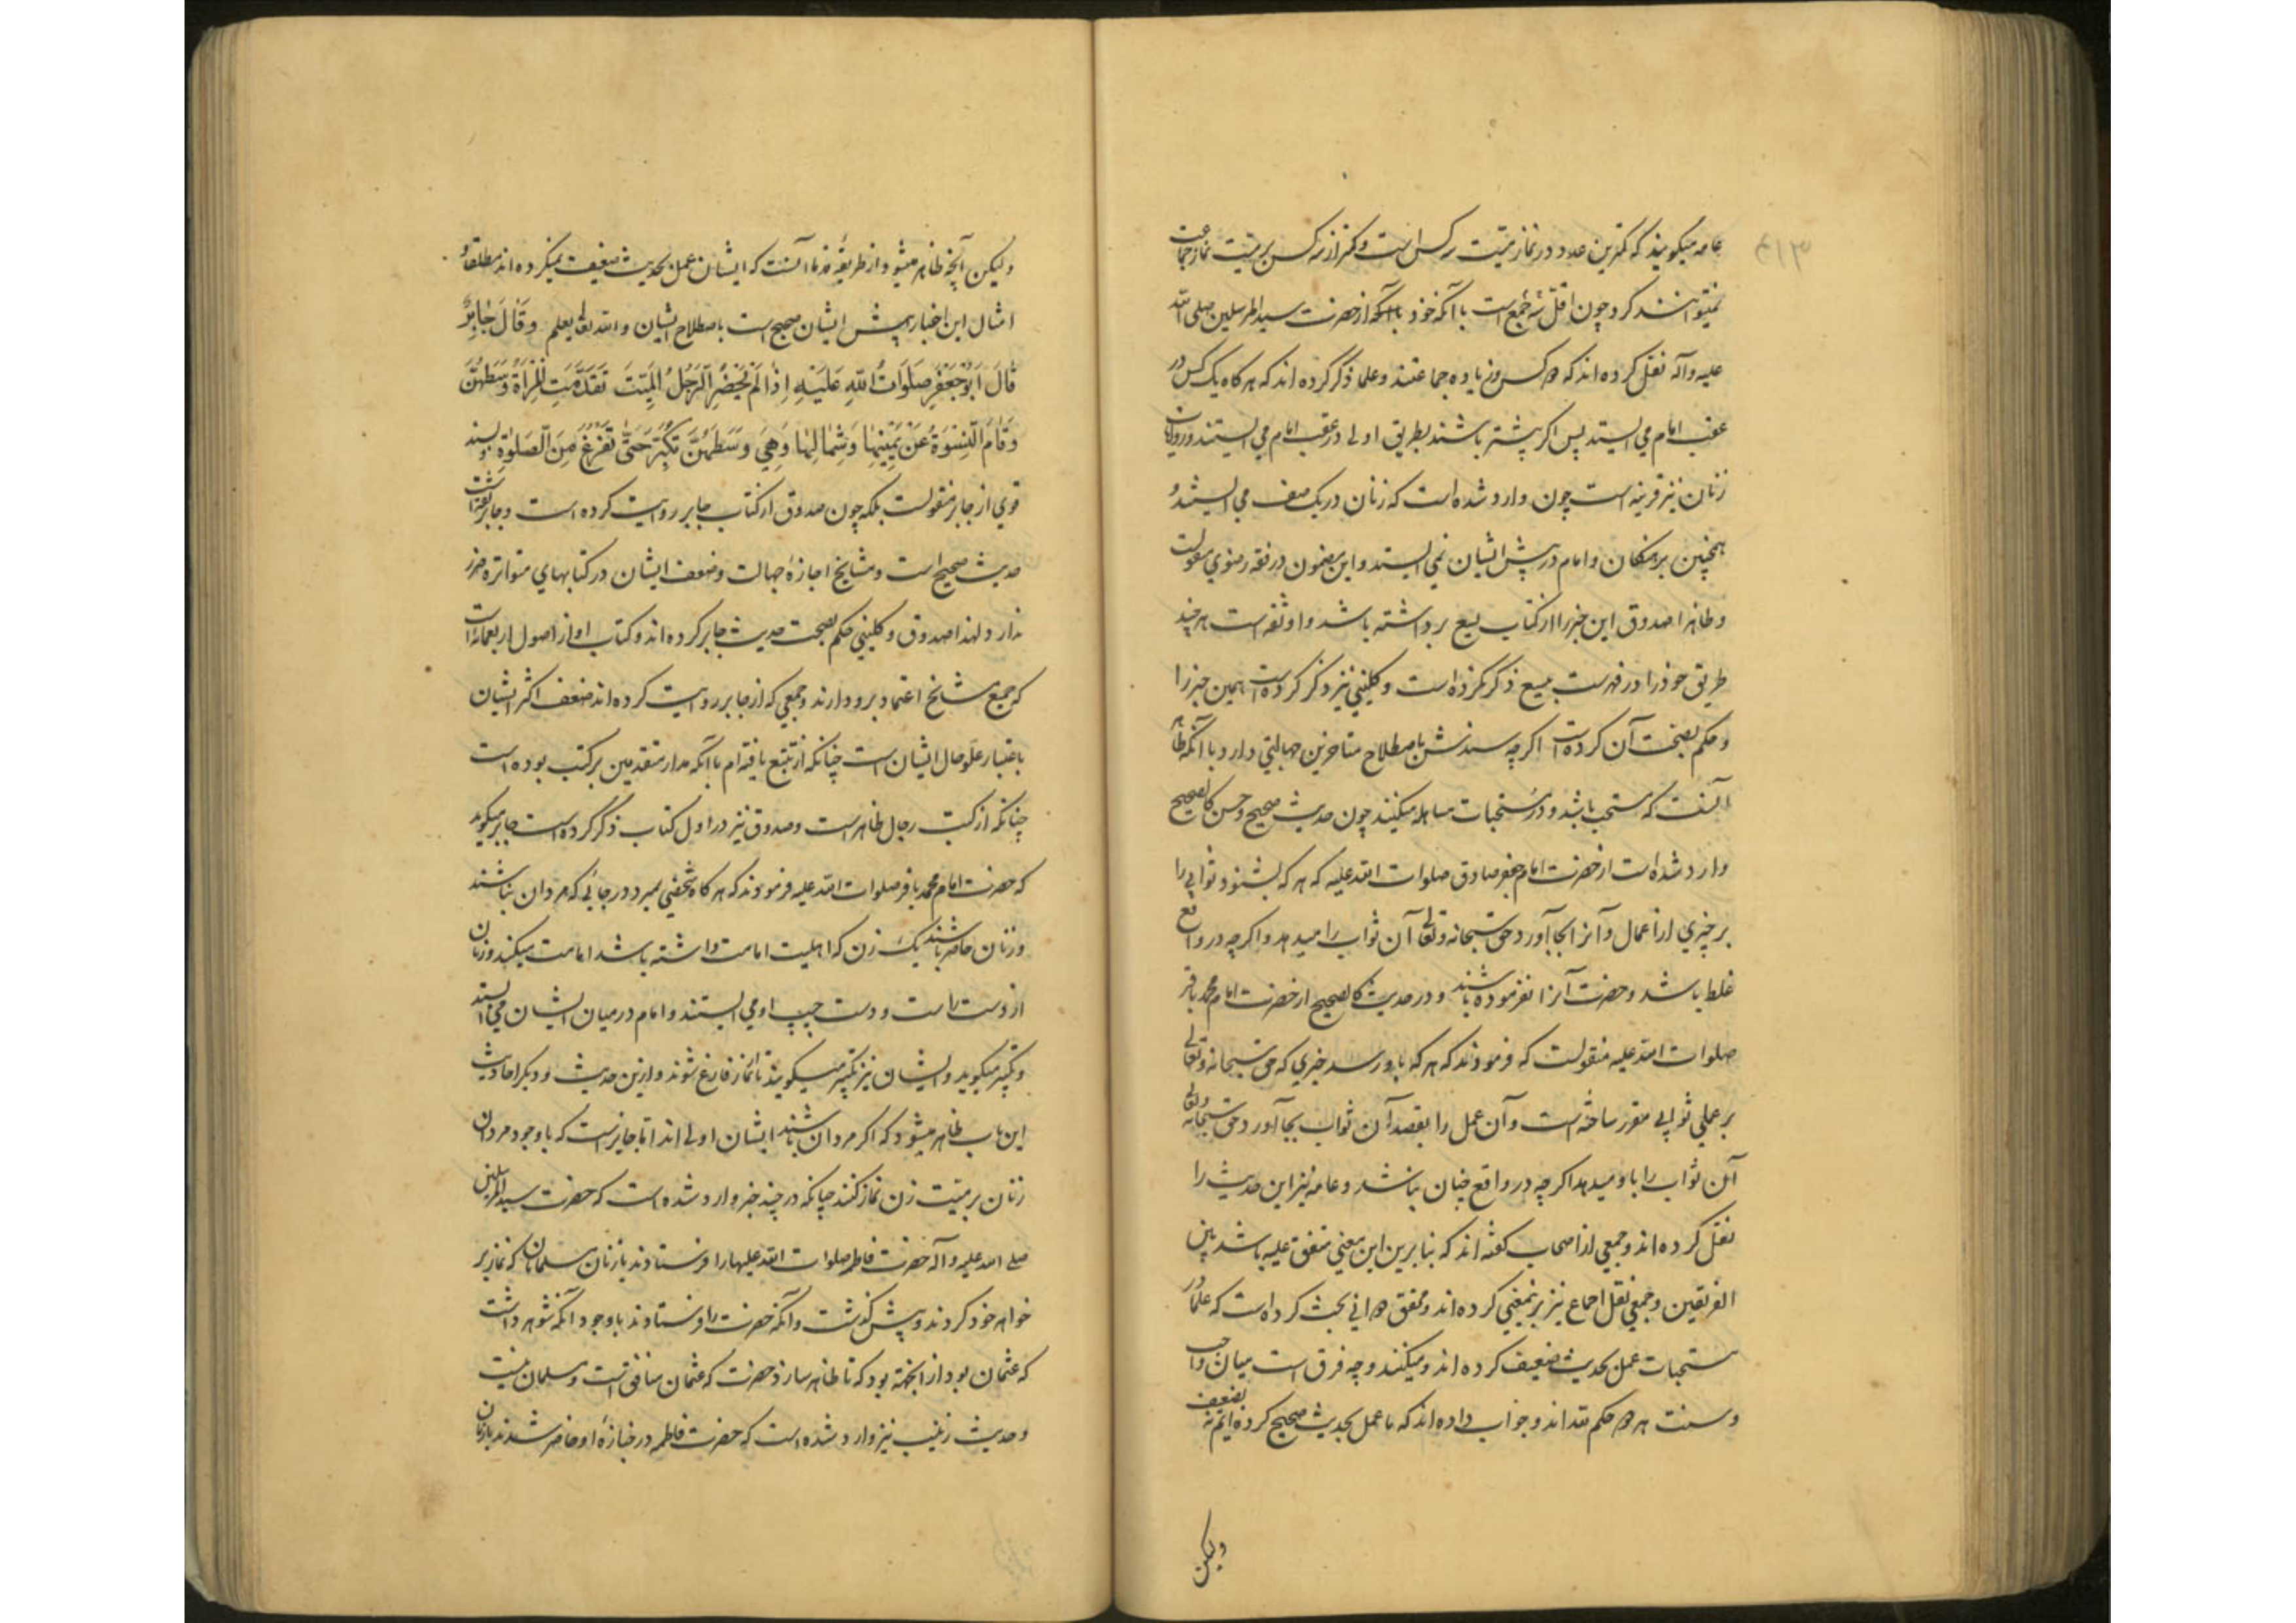 ۴۱۳
عامه میکویند که کمترین عدد در نماز میّت سه کس است و کمتر از سه کس بر میّت نماز جماعت
نمیتوانند کرد چون اقلّ جمع است با آنکه خود از حضرت سید المرسلین صلی الله
علیه وآله نقل کرده اند که دو کس و زیاده جماعتند و علما ذکر کرده اند که هرکاه یک کس در
عقب امام می ایستد پس اکر بیشتر باشند بطریق اولی در عقب امام می ایستند و روایات
زنان نیز قرینه است چون وارد شده است که زنان در یک صف می ایستند و
همچنین برهنکان و امام در پیش ایشان نمی ایستد و این مضمون در فقه رضوی منقولست
و ظاهرا صدوق این خبر را از کتاب یسع برداشته باشد و او ثقه است هر چند
طریق خود را در فهرست بیسع ذکر نکرده است و کلینی نیز ذکر کرده است همین خبر را
و حکم بصحّت آن کرده است اکر چه سندش باصطلاح متاخرین جهالتی دارد با آنکه ظاهر
آنست که مستحب باشد و در مستحبات مساهله میکنند چون حدیث صحیح و حسن کالصحیح
وارد شده است از حضرت امام جعفر صادق صلوات الله علیه که هر که بشنود ثوابی را
بر چیزی از اعمال و آنرا بجا آورد حق سبحانه وتعالی آن ثواب را میدهد و اکر چه در واقع
غلط باشد و حضرت آنرا نفرموده باشند و در حدیث کالصحیح از حضرت امام محمد باقر
صلوات الله علیه منقولست که فرمودند که هر که باو رسد خبری که حق سبحانه وتعالی
بر عملی ثوابی مقرر ساخته است و آن عمل را بقصد آن ثواب بجا آورد حق سبحانه وتعالی
آن ثواب را باو میدهد اکر چه در واقع چنان نباشد و عامه نیز این حدیث را
نقل کرده اند و جمعی از اصحاب کفته اند که بنا برین این معنی متفق علیه باشد بین
الفریقین و جمعی نقل اجماع نیز برینمعنی کرده اند و محقق دوانی بحث کرده است که علما در
مستحبات عمل بحدیث ضعیف کرده اند و میکنند و چه فرق است میان واجب
و سنت هر دو حکم الله اند و جواب داده اند که ما عمل بحدیث صحیح کرده ایم نه بضعیف
ولیکن
ولیکن آنچه ظاهر میشود از طریقه قدما آنست که ایشان عمل بحدیث ضعیف نمیکرده اند مطلقا و
امثال این اخبار پیش ایشان صحیح است باصطلاح ایشان والله تعالی یعلم وَقَالَ جَابِرٌ
قَالَ اَبُوجَعْفَرٍ صَلَوَاتُ اللهِ عَلَیْهِ اِذَا لَمْ یَحْضُرِ الرَّجُلُ الْمَیِّتَ تَقَدَّمَتِ امْرَأَةٌ وَسَطَهُنَّ
وَقَامَ النِّسْوَةُ عَنْ یَمِیْنِهَا وَشِمَالِهَا وَهِیَ وَسَطَهُنَّ تُکَبِّرُ حَتَّی تَفْرُغَ مِنَ الصَّلوٰةِ بسند
قوی از جابر منقولست بلکه چون صدوق از کتاب جابر روایت کرده است و جابر ثقه است
حدیث صحیح است و مشایخ اجازهٔ جهالت و ضعف ایشان در کتابهای متواتره ضرر
ندارد و لهذا صدوق و کلینی حکم بصحت حدیث جابر کرده اند و کتاب او از اصول اربعمائه است
که جمیع مشایخ اعتماد برو دارند و جمعی که از جابر روایت کرده اند ضعف اکثر ایشان
باعتبار علوّ حال ایشان است چنانکه از تتبع یافته ام با آنکه مدار متقدمین بر کتب بوده است
چنانکه از کتب رجال ظاهر است و صدوق نیز در اول کتاب ذکر کرده است جابر میکوید
که حضرت امام محمد باقر صلوات الله علیه فرمودند که هرکاه شخصی بمیرد در جائی که مردان نباشند
و زنان حاضر باشند یک زن که اهلیت امامت داشته باشد امامت میکند و زنان
از دست راست و دست چپ او می ایستند و امام در میان ایشان می ایستد
و تکبیر میکوید و ایشان نیز تکبیر میکویند تا از نماز فارغ شوند و ازین حدیث و دیکر احادیث
این باب ظاهر میشود که اکر مردان باشند ایشان اولی اند اما جایز است که با وجود مردان
زنان بر میّت زن نماز کنند چنانکه در چند خبر وارد شده است که حضرت سید المرسلین
صلی الله علیه وآله حضرت فاطمه صلوات الله علیها را فرستادند با زنان مسلمانان که نماز بر
خواهر خود کردند و پیش کذشت و آنکه حضرت را فرستادند با وجود آنکه شوهر داشت
که عثمان بود از اینجهة بود که تا ظاهر سازد حضرت که عثمان منافق است و مسلمان نیست
و حدیث زینب نیز وارد شده است که حضرت فاطمه در جنازهٔ او حاضر شدند با زنان